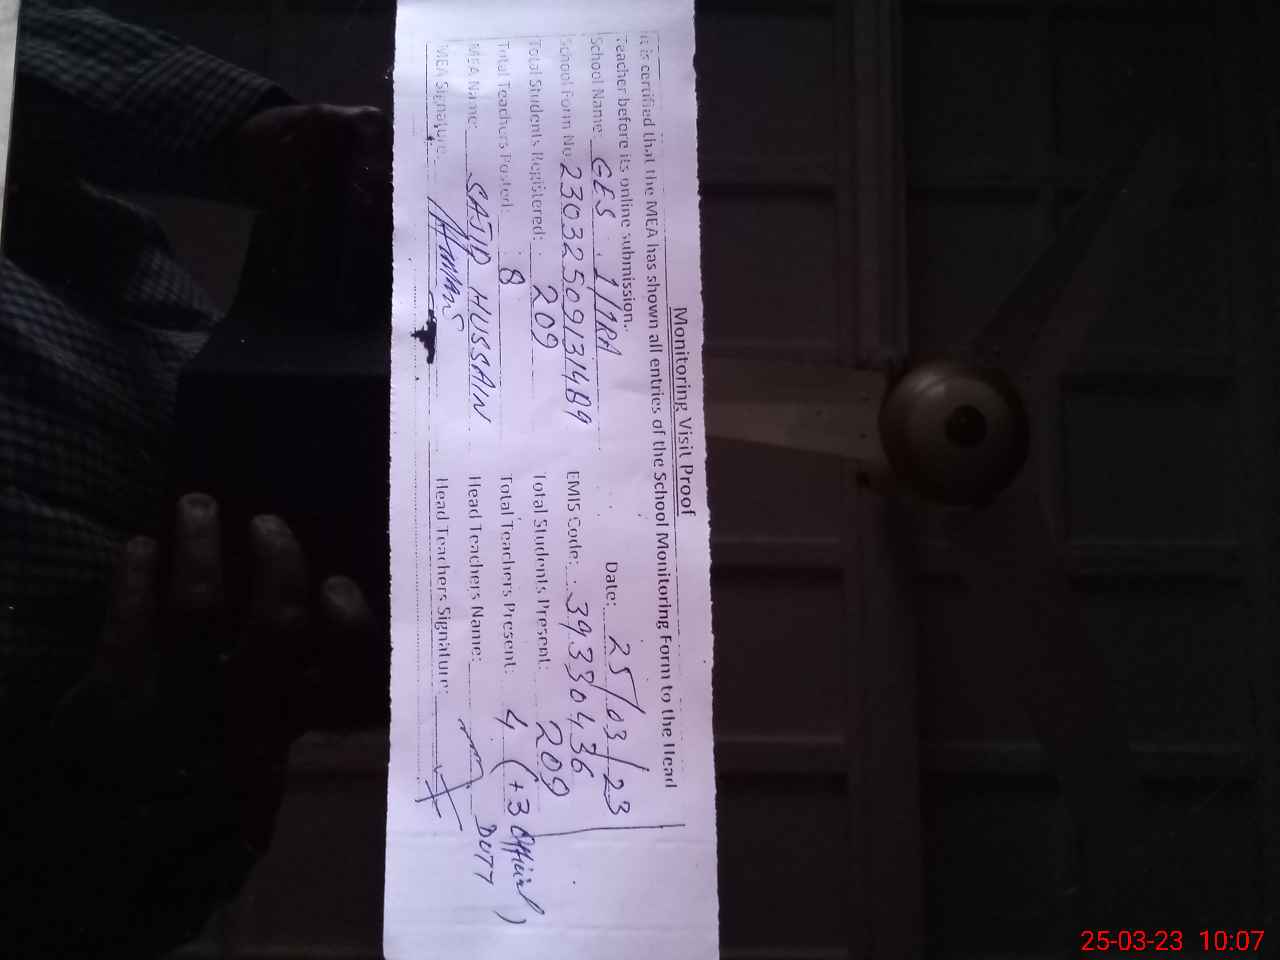 Monitoring Visit Proof
It is certified that the MEA has shown all entries of the School Monitoring Form to the Head
Teacher before its online submission..
School Name: GES 1/1RA Date: 25/03/23
School Form No 23032509131489 EMIS Code: 39330436
Total Students Registered: 209 Total Students Present: 209
Total Teachers Posted: 8 Total Teachers Present: 4 (+3 Official)
MEA Name: SAJID HUSSAIN Head Teachers Name: DUTY
MEA Signature: Head Teachers Signature:
25-03-23 10:07